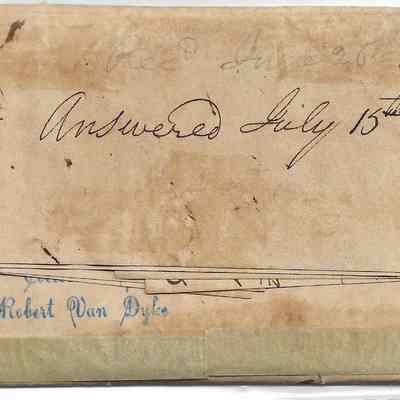 Rec'd June 26
Answered July 15th
Robert Van Dyke